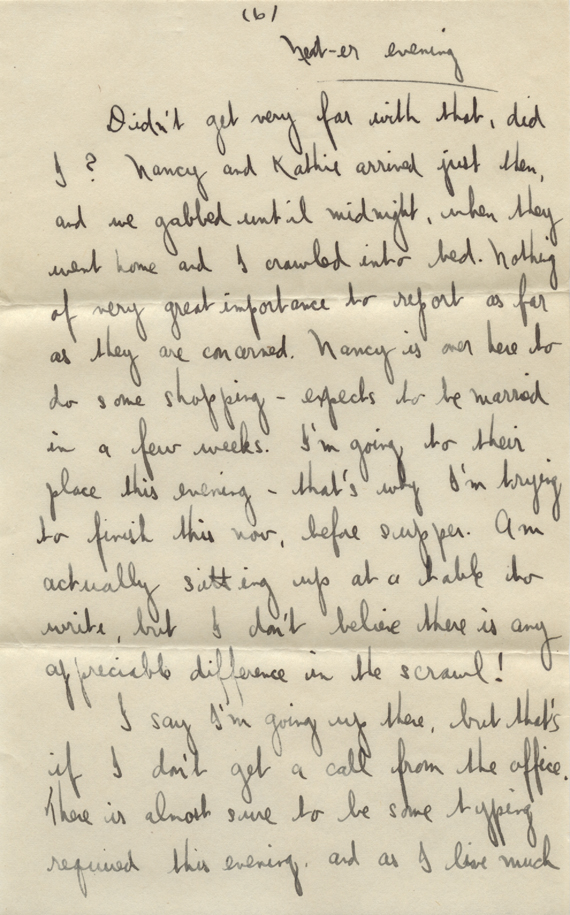 (6)
Next-er evening
Didn't get very far with that, did
I? Nancy and Kathie arrived just then,
and we gabbed until midnight, when they
went home and I crawled into bed. Nothing
of very great importance to report as far
as they are concerned. Nancy is over here to
do some shopping - expects to be married
in a few weeks. I'm going to their
place this evening - that's why I'm trying
to finish this now, before supper. Am
actually sitting up at a table to
write, but I don't believe there is any
appreciable difference in the scrawl!
I say I'm going up there, but that's
if I don't get a call from the office.
There is almost sure to be some typing
required this evening, and as I live much